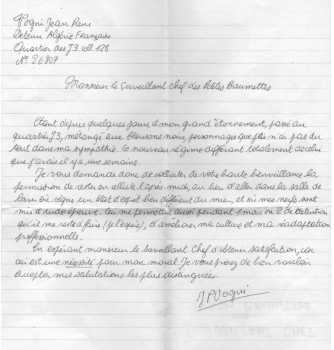 Vogni Jean Paul
Détenu Algérie Française
Quartier des J3 cell 128
N° 26707
Monsieur le Surveillant Chef des Petites Baumettes
Étant depuis quelques jours à mon grand étonnement, passé au
quartier J3, mélangé aux blousons noirs, personnages que je n'ai pas du
tout dans ma sympathie, le nouveau régime différant totalement de celui
que j'avais il y a une semaine.
Je vous demande donc de solliciter de votre haute bienveillance la
permission de rester en cellule l'après-midi, au lieu d'aller dans la salle de
où règne un état d'esprit bien différent du mien, et où mes nerfs sont
mis à rude épreuve. Ceci me permettra aussi pendant mois de détention
qu'il me reste à faire (je l'espère), d'améliorer ma culture et ma réadaptation
professionnelle.
En espérant monsieur le Surveillant Chef d'obtenir satisfaction, car
ceci est une nécessité pour mon moral. Je vous prie de bien vouloir
accepter mes salutations les plus distinguées.
JPVogni